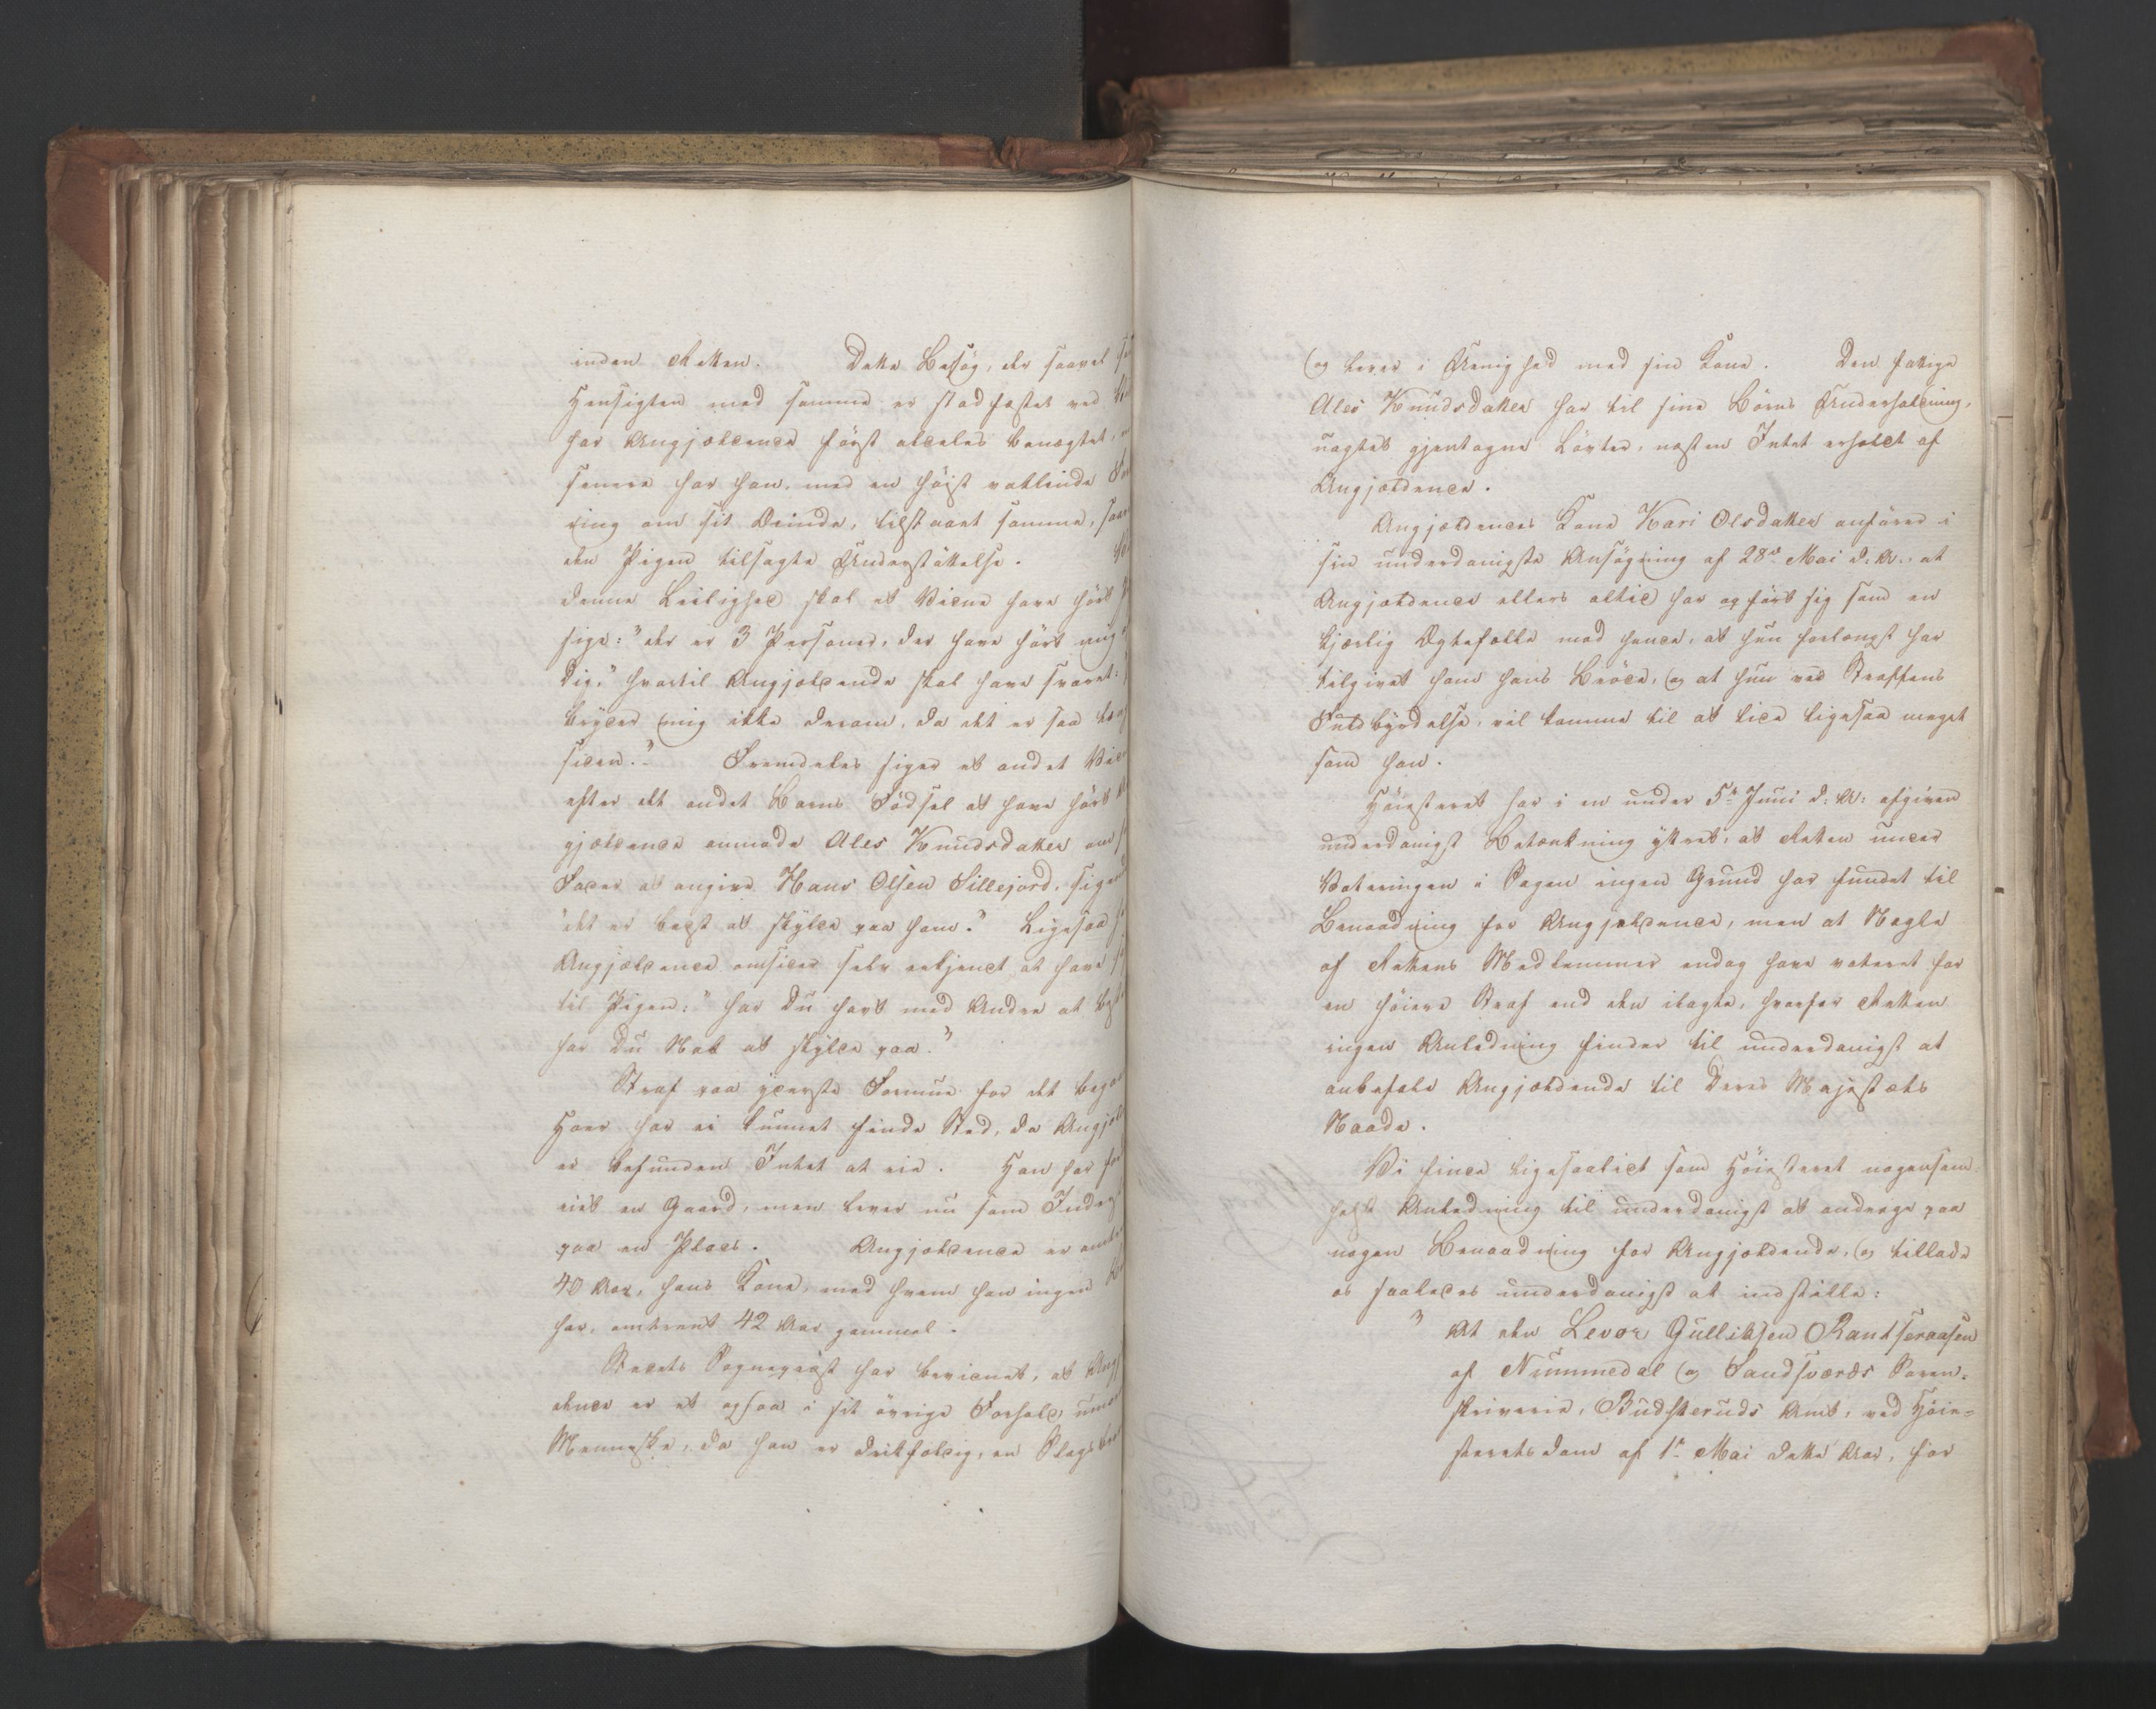 inden Retten. Dette Besøg, der saavel
Hensigten med samme er stadfæstet ved
har Angjældende først aldeles benægtet,
senere har han, med en høist vaklende
ring om sit Ærinde, tilstaaet samme,
den Pigen tilsagte Understøttelse.
denne Leilighed skal et Vidne have hørt
sige: "der er 3 Personer, der have hørt mig
dig," hvortil Angjældende skal have svaret:
bryder mig ikke derom, da det er saa
siden." Fremdeles siger et andet
efter det andet Barns Fødsel at have hørt
gjældende anmode Ales Knudsdatter om
Fader at angive Hans Olsen Sillejord,
"det er bedst at skylde paa ham." Ligesaa
Angjældende omsider selv erkjendt at have
til Pigen: "har Du havt med Andre at
har Du Nok at skylde paa."
Straf paa yderste Formue for det
Hoer har ei kunnet finde Sted, da
er befunden Intet at eie. Han har
eiet en Gaard, men lever nu som
paa en Plads. Angjældende er
40 Aar, hans Kone, med hvem han ingen
har, omtrent 42 Aar gammel.
Stedets Sognepræst har bevidnet, at
dende er et ogsaa i sit øvrige Forhold
Menneske, da han er drikfældig, en
og lever i Uenighed med sin Kone. Den fattige
Ales Knudsdatter har til sine Børns Underholdning,
uagtet gjentagne Løvter, næsten Intet erholdt af
Angjældende.
Angjældendes Kone Kari Olsdatter anfører i
sin underdanigste Ansøgning af 28de Mai d. A., at
Angjældende ellers altid har opført sig som en
kjærlig Ægtefælle mod hende, at hun forlængst har
tilgivet ham hans Brøde, og at hun ved Straffens
Fuldbyrdelse, vil komme til at lide ligesaa meget
som han.
Høiesteret har i en under 5te Juni d: A: afgiven
underdanigst Betænkning yttret, at Retten under
Voteringen i Sagen ingen Grund har fundet til
Benaadning for Angjældende, men at Nogle
af Rettens Medlemmer endog have voteret for
en høiere Straf end den ilagte, hvorfor Retten
ingen Anledning finder til underdanigst at
anbefale Angjældende til Deres Majestæts
Naade.
Vi finde ligesaalidt som Høiesteret nogensom-
helst Anledning til underdanigst at andrage paa
nogen Benaadning for Angjældende, og tillade
os saaledes underdanigst at indstille:
"At den Levor Gulliksen Rantseraasen
af Nummedal og Sandsværds Soren-
skriverie, Budskeruds Amt, ved Høie-
steretsdom af 1ste Mai dette Aar, for